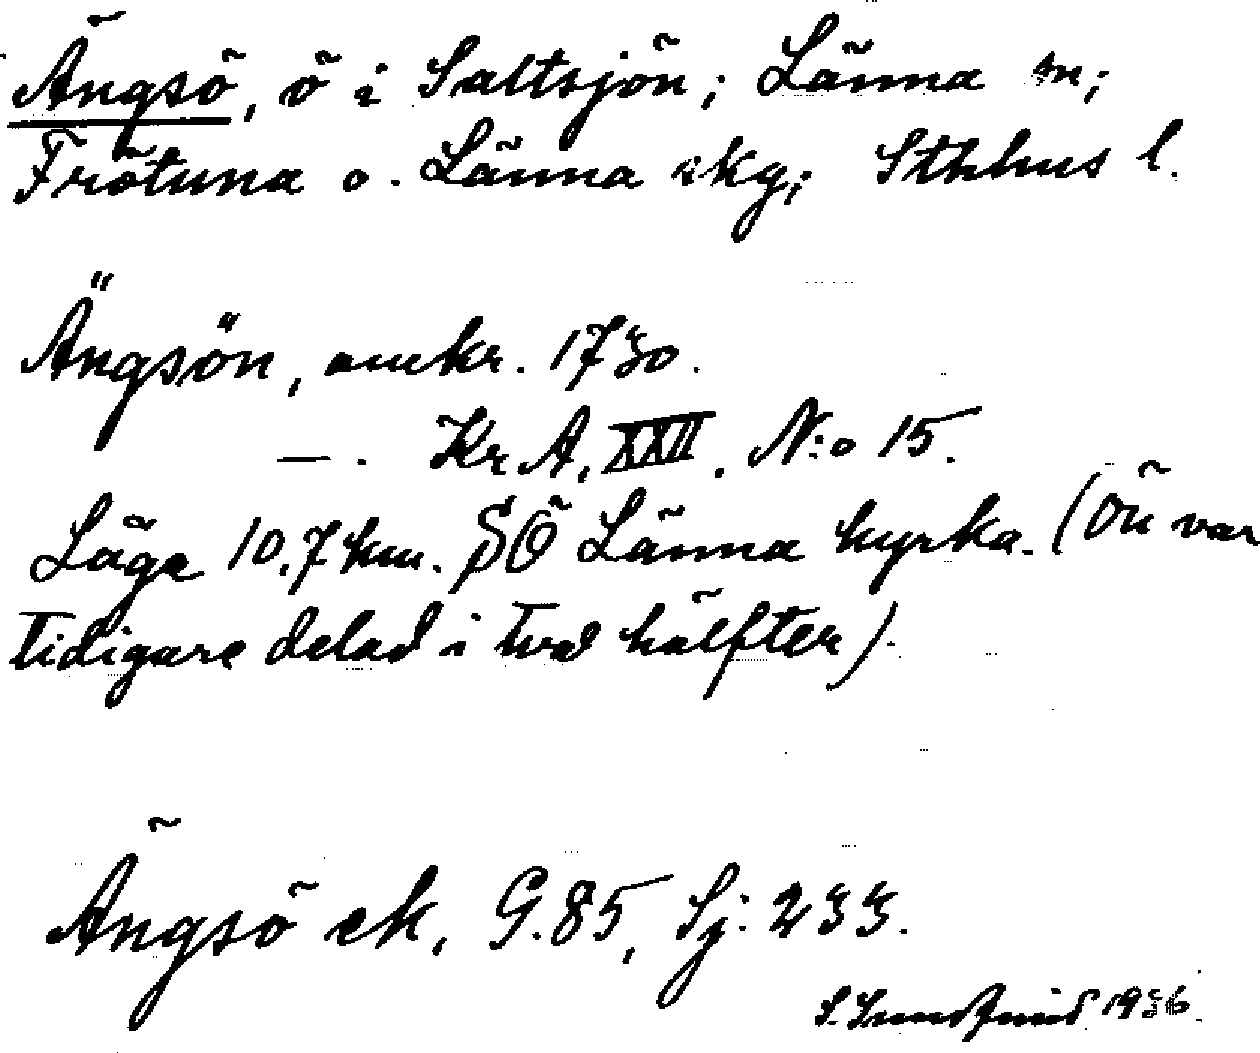 Ängsö, ö i Saltsjön; Länna sn;
Frötuna o. Länna skg; Sthlms l.
Ängsön, omkr. 1730.
—. Kr A, XXII. N:o 15.
Läge 10,7 km. SÖ Länna kyrka. (Ön var
tidigare delad i två hälfter).
Ängsö ek, G. 85, Sj: 233.
S. 1936